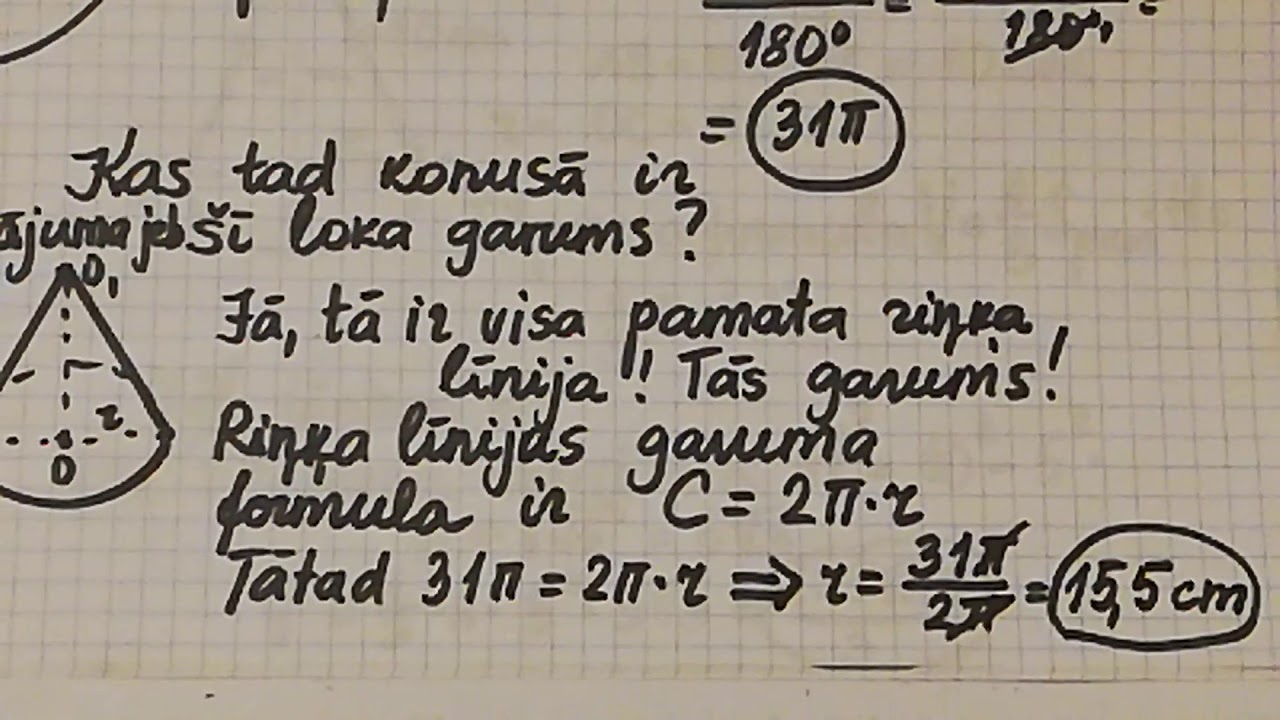 180° 180°
= 31π
Kas tad konusā ir
šī loka garums?
O₁
Jā, tā ir visa pamata riņķa
līnija!! Tās garums!
r
O
Riņķa līnijas garuma
formula ir C = 2π·r
Tātad 31π = 2π·r ⇒ r = 31π/2π = 15,5 cm